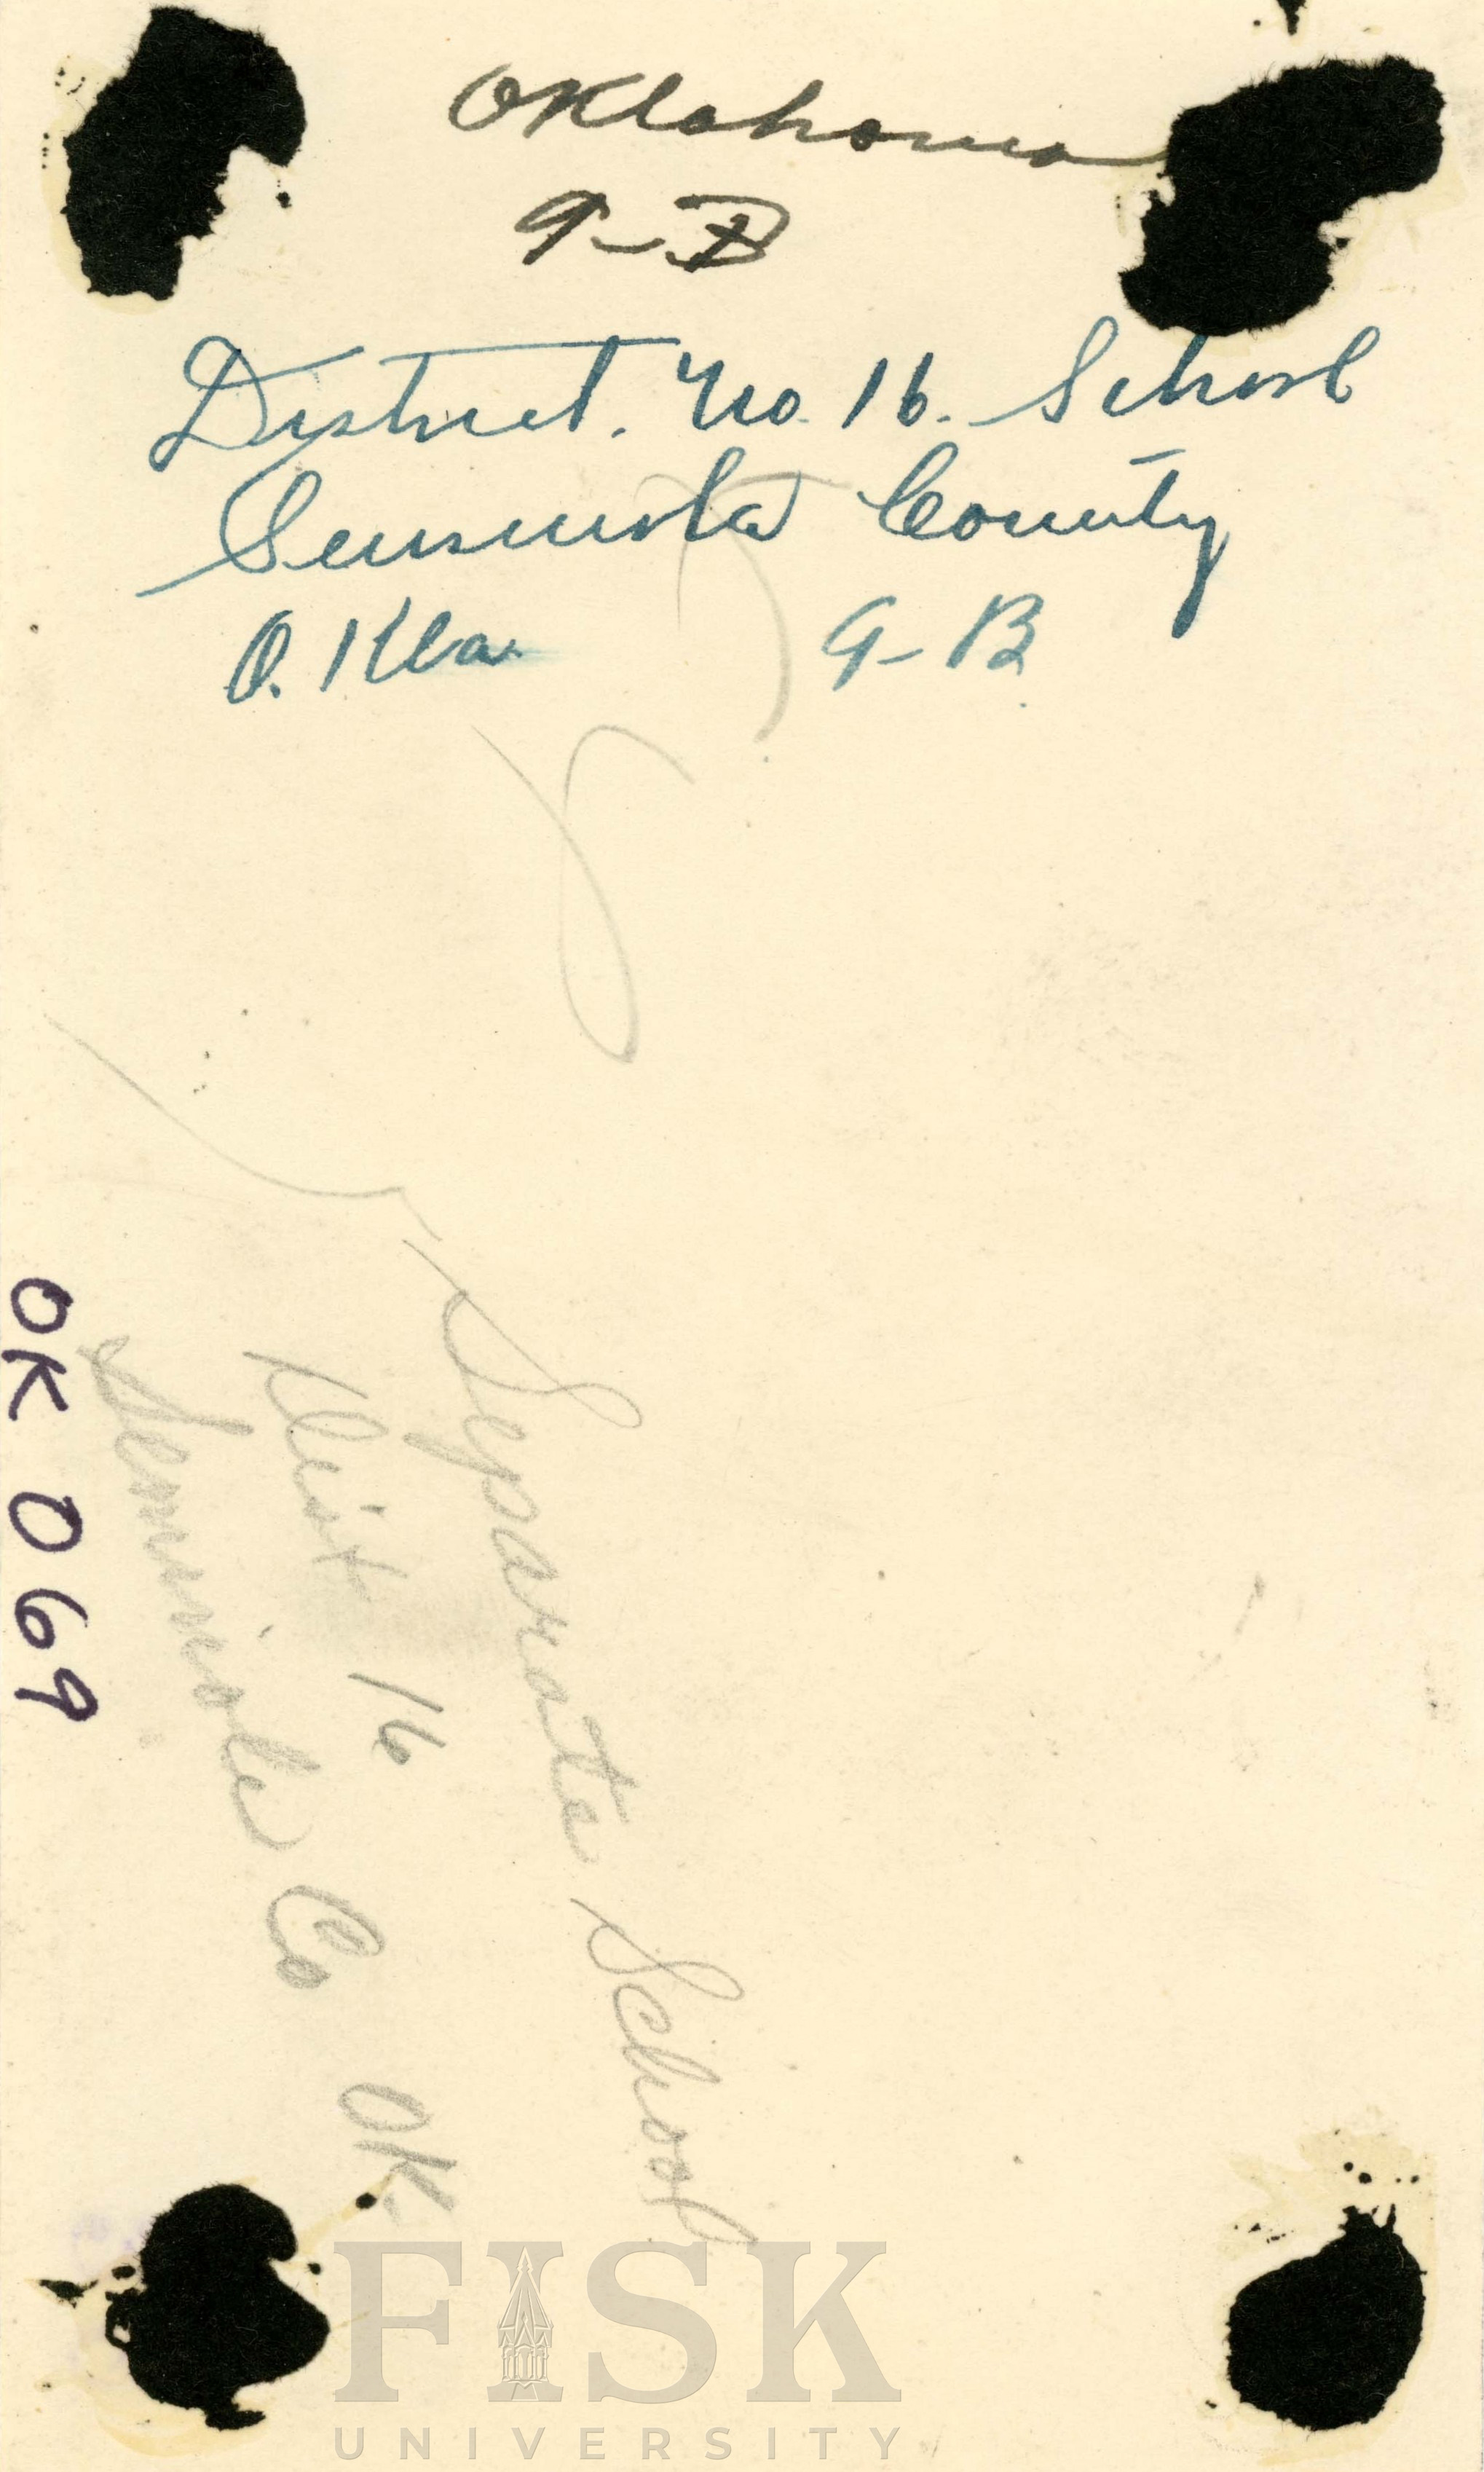 Oklahoma
9-B
District. No. 16. School
Seminole County
O. Kla.
9-B
Separate School
Dist 16
Seminole Co OK.
OK 069
FISK
UNIVERSITY